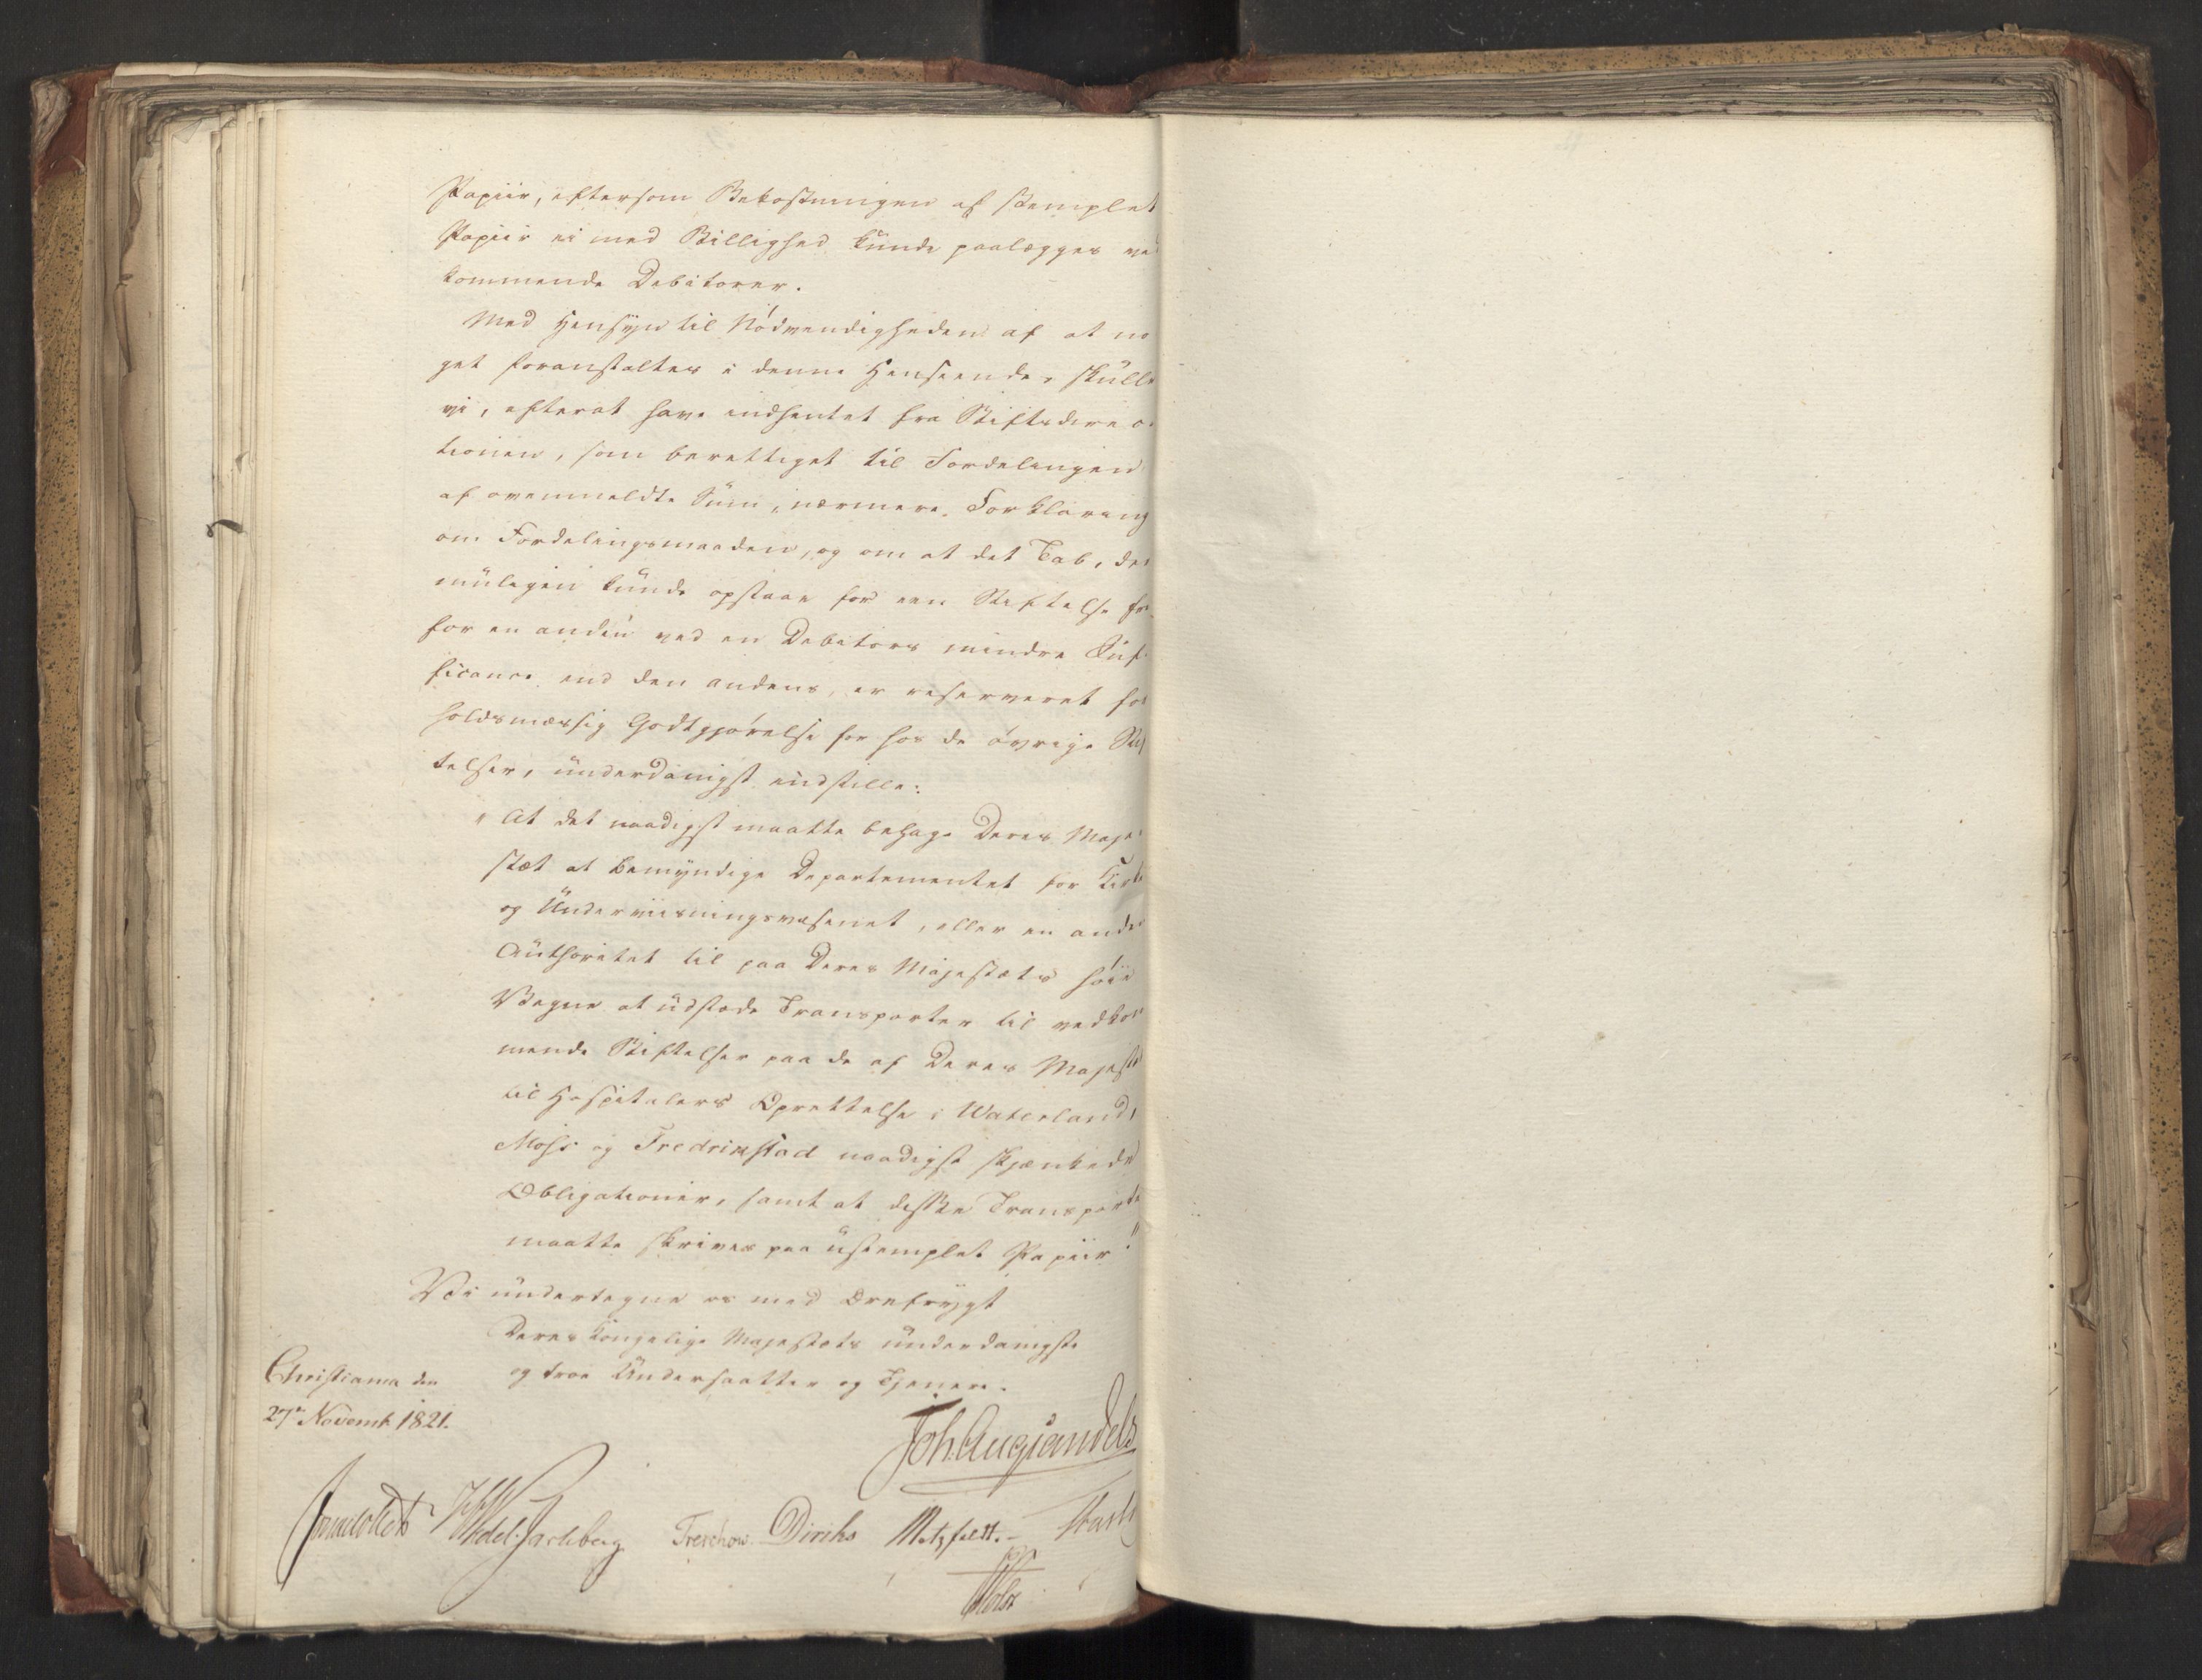 Papiir, eftersom Bekostningen af stemplet
Papiir ei med Billighed kunde paalægges ved
kommende Debitorer.
Med Hensyn til Nödvendigheden af at no
get foranstaltes i denne Henseende, skulle
vi, efterat have indhentet fra Stiftsdirec
tionen, som berettiget til Fordelingen
af ovenmeldte Sum, nærmere Forklaring
om Fordelingsmaaden, og om at det Tab, der
muligen kunde opstaae for een Stiftelse frem
for en anden ved en Debitors mindre Suf
ficance end den andens, er reserveret for
holdsmæssig Godtgjörelse for hos de övrige Stif
telser, underdanigst indstille:
"At det naadigst maatte behage Deres Maje
stæt at bemyndige Departementet for Kirke
og Underviisningsvæsenet, eller en anden
Authoritet til paa Deres Majestæts höie
Vegne at udstæde Transporter til vedkom
mende Stiftelser paa de af Deres Majestæt
til Hospitalers Oprettelse i Waterland,
Moss og Fredrikstad naadigst skjænkede
Obligationer, samt at disse Transporter
maatte skrives paa ustemplet Papiir."
Vi undertegne os med Ærefrygt
Deres Kongelige Majestæts underdanigste
og troe Undersaatter og Tjenere.
Christiania den
27de Novemb. 1821.
Joh. Aug Sandels
Sommelhielm HWedel-Jarlsberg Treschow Diriks Motzfeldt. Fasting
Holst